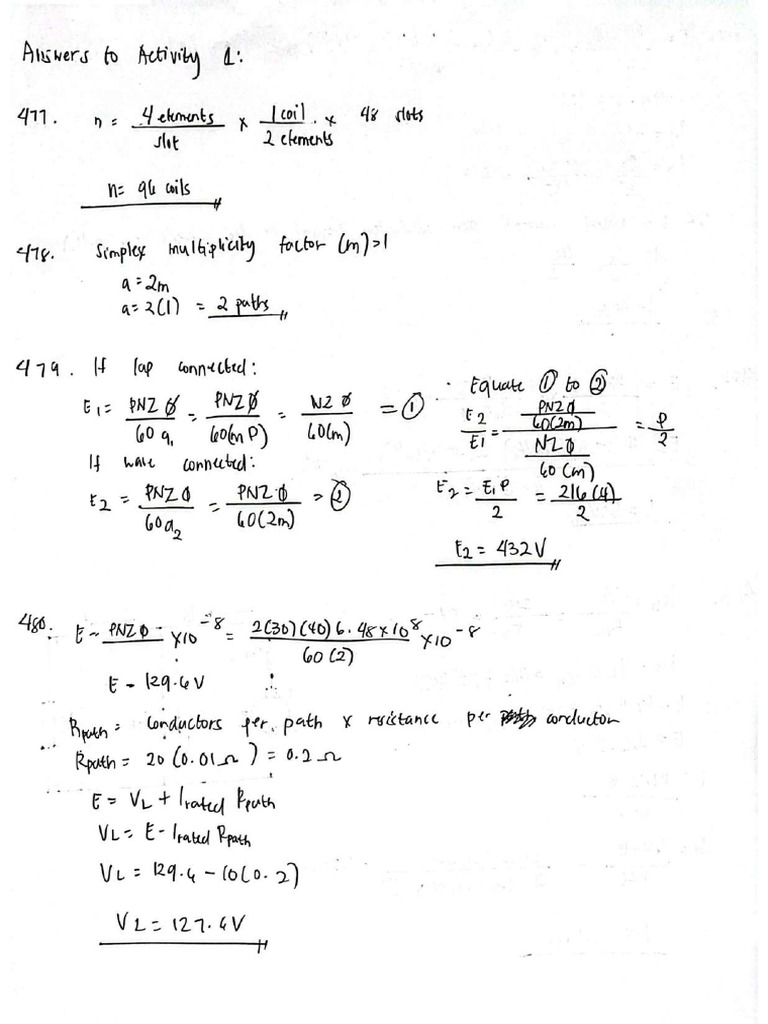 Answers to Activity 1:
477. n = 4 elements/slot × 1 coil/2 elements × 48 slots
n= 96 coils
478. Simplex multiplicity factor (m)=1
a=2m
a=2(1) = 2 paths
479. If lap connected:
E1= PNZØ/60a1 = PNZØ/60(mP) = NZØ/60(m) = ①
If wave connected:
E2 = PNZØ/60a2 = PNZØ/60(2m) = ②
Equate ① to ②
E2/E1 = PNZØ/60(2m) / NZØ/60(m) = P/2
E2 = E1P/2 = 216(4)/2
E2 = 432V
480. E = PNZØ × 10^-8 = 2(30)(40)6.48×10^8/60(2) ×10^-8
E = 129.6V ∴
Rpath = conductors per path × resistance per conductor
Rpath = 20 (0.01Ω) = 0.2Ω
E = VL + Irated Rpath
VL = E - Irated Rpath
VL = 129.6 - 10(0.2)
VL = 127.6V